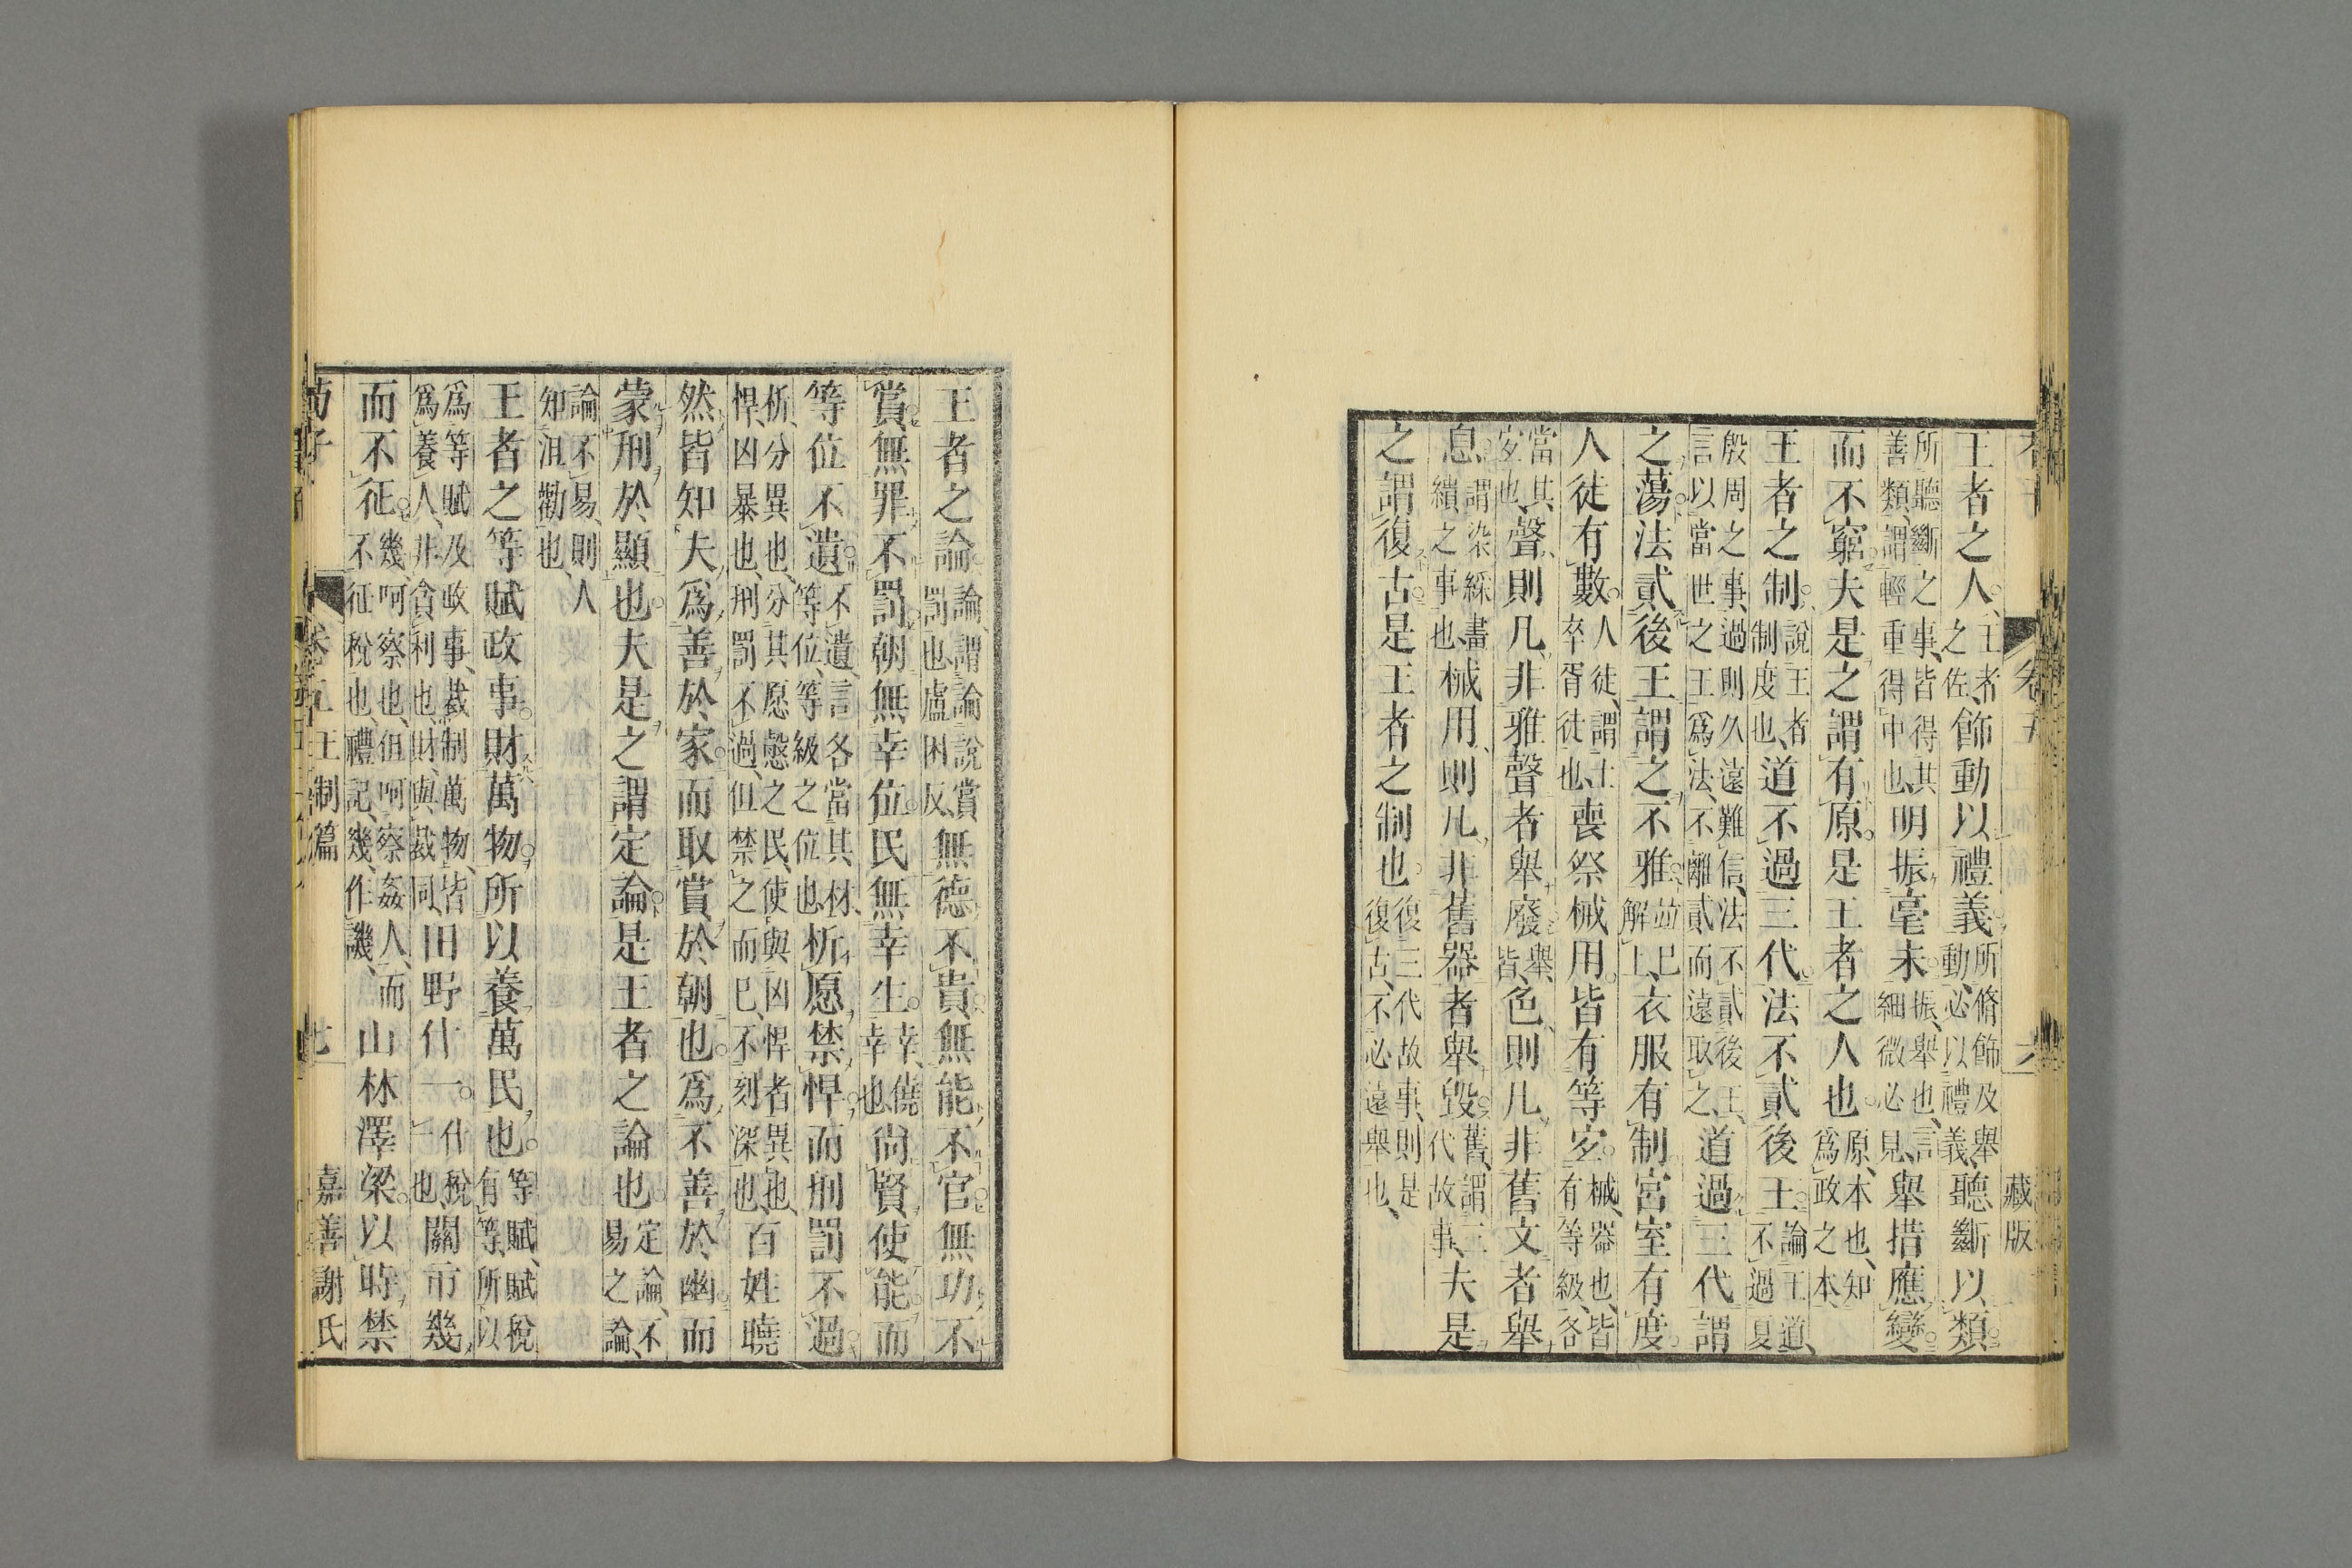 卷五 六 藏版
王者之人。王者之佐、飾動以禮義。所脩飾及舉動、必以禮義、聽斷以類。
所聽斷之事、皆得其善類、謂輕重得中也、明振毫末。振、舉也、言細微必見、舉措應變
而不窮。夫是之謂有原。是王者之人也。原、本也、知爲政之本、
王者之制。說王者制度也、道不過三代。法不貳後王。論王道、不過夏
殷周之事、過則久遠難信、法不貳後王、言以當世之王爲法、不離貳而遠取之、道過三代謂
之蕩。法貳後王謂之不雅。竝巳解上、衣服有制。宮室有度。
人徒有數。人徒、謂士卒胥徒也、喪祭械用。皆有等宐。械、器也、皆有等級、各
當其宐也、聲則凡非雅聲者舉廢。舉、皆、色則凡非舊文者舉
息。謂染綵畫繢之事也、械用則凡非舊器者舉毀。舊、謂三代故事、夫是
之謂復古。是王者之制也。復三代故事、則是復古、不必遠舉也、
王者之論。論、謂論說賞罰也、盧困反、無德不貴。無能不官。無功不
賞。無罪不罰。朝無幸位。民無幸生。幸、僥幸也、尙賢使能。而
等位不遺。不遺、言各當其材、等位、等級之位也、析愿禁悍。而刑罰不過。
析、分異也、分其愿慤之民、使與凶悍者異也、悍、凶暴也、刑罰不過、但禁之而巳、不刻深也、百姓曉
然皆知夫爲善於家。而取賞於朝也。爲不善於幽。而
蒙刑於顯也。夫是之謂定論。是王者之論也。定論、不易之論、
論不易、則人知沮勸也、
王者之等賦政事。財萬物。所以養萬民也。等賦、賦稅有等、所以
爲等賦及政事、裁制萬物、皆爲養人、非貪利也、財、與裁同、田野什一。什稅一也、關市幾
而不征。幾、呵察也、但呵察姦人、而不征稅也、禮記、幾、作譏、山林澤梁。以時禁
荀子 卷五 王制篇 七 嘉善謝氏